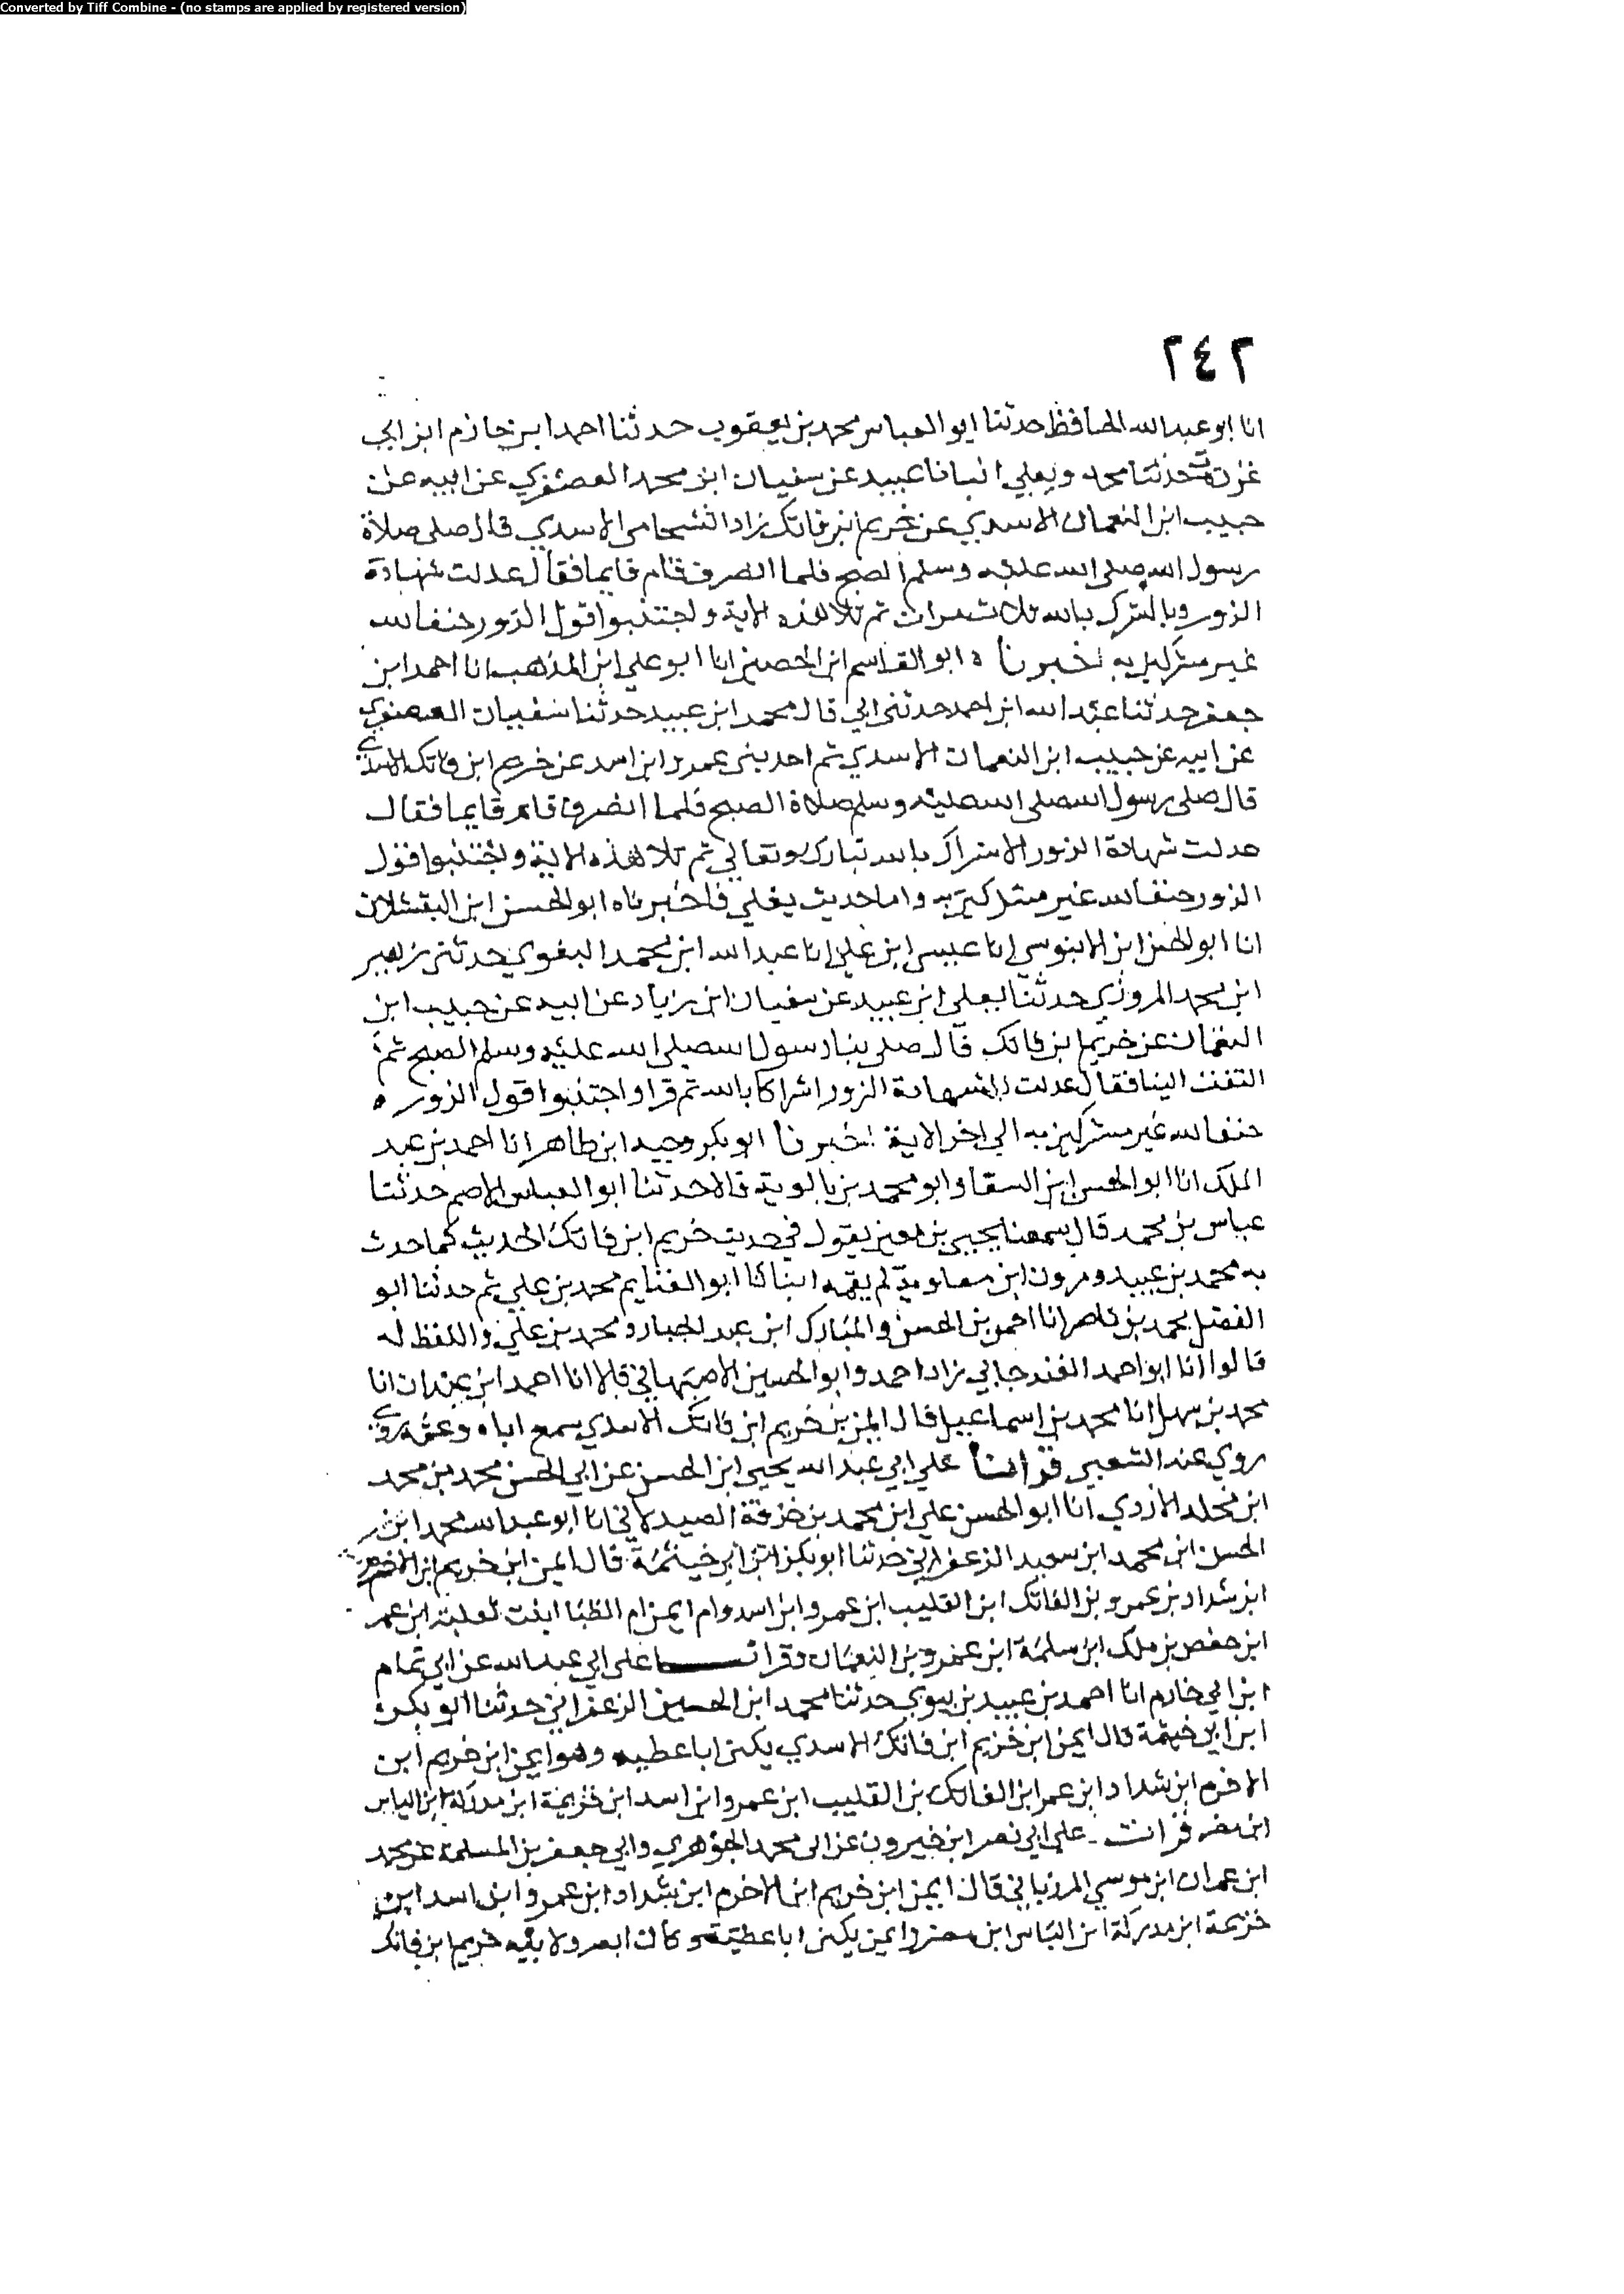 Converted by Tiff Combine - (no stamps are applied by registered version)
٢٤٢
انا ابو عبد الله الحافظ حدثنا ابو العباس محمد بن يعقوب حدثنا احمد ابن حازم ابن ابي
غرزة حدثنا محمد ويعلي انبانا عبيد عن سفيان ابن محمد العصفري عن ابيه عن
حبيب ابن النعمان الاسدي عن خريم ابن فاتك زاد الشحامي الاسدي قال صلى صلاة
رسول الله صلى الله عليه وسلم الصبح فلما انصرف قام قايما فقال عدلت شهادة
الزور وبالشرك بالله ثلاث مرات ثم تلا هذه الاية واجتنبوا قول الزور حنفا لله
غير مشركين به اخبرنا ه ابو القاسم ابن الحصين انا ابو علي ابن المذهب انا احمد ابن
جعفر حدثنا عبد الله ابن احمد حدثني ابي قال محمد ابن عبيد حدثنا سفيان العصفري
عن ابيه عن حبيب ابن النعمان الاسدي ثم احد بني عمرو ابن اسد عن خريم ابن فاتك الاسدي
قال صلى رسول الله صلى الله عليه وسلم صلاة الصبح فلما انصرف قام قايما فقال
عدلت شهادة الزور الاشراك بالله تبارك وتعالي ثم تلا هذه الاية واجتنبوا قول
الزور حنفا لله غير مشركين به واما حديث يعلي فاخبرناه ابو الحسن ابن البقشلان
انا ابو الحسن ابن الابنوسي انا عيسى ابن علي انا عبد الله ابن محمد البغوي حدثني زهير
ابن محمد المروزي حدثنا يعلي ابن عبيد عن سفيان ابن زياد عن ابيه عن حبيب ابن
النعمان عن خريم ابن فاتك قال صلى بنا رسول الله صلى الله عليه وسلم الصبح ثم
التفت الينا فقال عدلت شهادة الزور اشراكا بالله ثم قرا واجتنبوا قول الزور ه
حنفا لله غير مشركين به الي اخر الاية اخبرنا ابو بكر وجيه ابن طاهر انا احمد بن عبد
الملك انا ابو الحسن ابن السقا وابو محمد بن بالوية قالا حدثنا ابو العباس الاصم حدثنا
عباس بن محمد قال سمعنا يحيى بن معين يقول في حديث خريم ابن فاتك الحديث كما حدث
به محمد بن عبيد ومرون ابن معاوية لم يقمه انبانا ابو الغنايم محمد بن علي ثم حدثنا ابو
الفضل محمد بن ناصر انا احمد بن الحسن والمبارك ابن عبد الجبار ومحمد بن علي واللفظ له
قالوا انا ابو احمد الغندجاني زاد احمد وابو الحسين الاصبهاني قالا انا احمد ابن عبدان انا
محمد بن سهل انا محمد بن اسماعيل قال ايمن بن خريم ابن فاتك الاسدي سمع اباه وعمه روي
روي عنه الشعبي قراتنا علي ابي عبد الله يحيى ابن الحسن عن ابي الحسن محمد بن محمد
ابن مخلد الازدي انا ابو الحسن علي ابن محمد بن خزفة الصيدلاني انا ابو عبد الله محمد ابن
الحسن ابن محمد ابن سعيد الزعفراني حدثنا ابو بكر ابن ابي خيثمة قال ايمن ابن خريم ابن الاخرم
ابن شداد بن عمرو بن الفاتك ابن القليب ابن عمرو ابن اسد وام ايمن ام الظبا ابنت ثعلبة ابن عمر
ابن حفص بن ملك ابن سلمة ابن عمرو بن النعمان وقرات علي ابي عبد الله عن ابي تمام
ابن ابي خازم انا احمد بن عبيد بن بيري حدثنا محمد ابن الحسين الزعفراني حدثنا ابو بكر
ابن ابي خيثمة قال ايمن ابن خريم ابن فاتك الاسدي يكنى ابا عطيه وهو ايمن ابن خريم ابن
الاخرم ابن شداد ابن عمر ابن الفاتك بن القليب ابن عمرو ابن اسد ابن خزيمة ابن مدركة ابن الياس
ابن مضر قرات علي ابي نصر ابن خيرون عن ابي محمد الجوهري وابي جعفر بن المسلمة عن محمد
ابن عمران ابن موسي المرزباني قال ايمن ابن خريم ابن الاخرم ابن شداد ابن عمرو ابن اسد ابن
خزيمة ابن مدركة ابن الياس ابن مضر وايمن يكنى ابا عطية وكان ابرص ولابيه خريم ابن فاتك